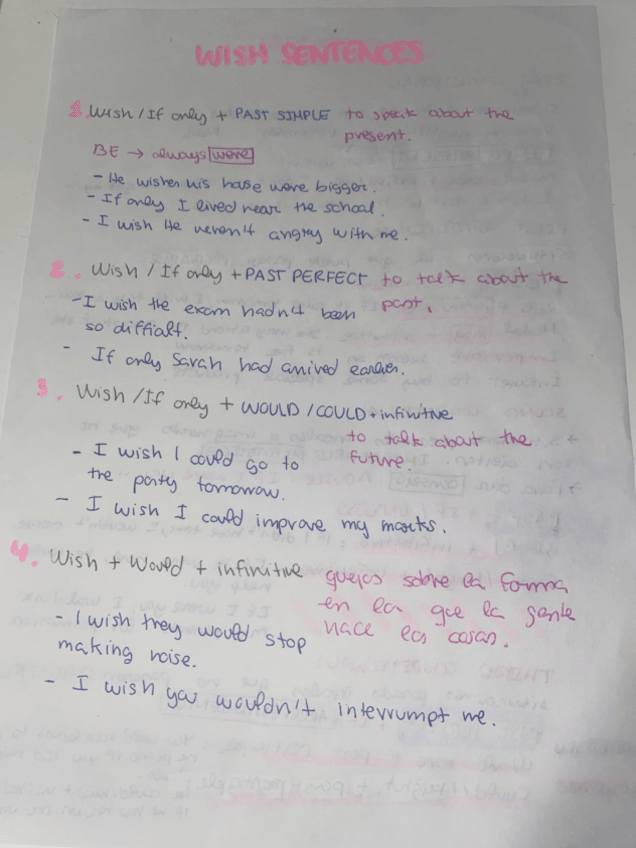 WISH SENTENCES
1. Wish / If only + PAST SIMPLE to speak about the
present.
BE → always were
- He wishes his house were bigger.
- If only I lived near the school.
- I wish He weren't angry with me.
2. Wish / If only + PAST PERFECT to talk about the
past.
- I wish the exam hadn't been
so difficult.
- If only Sarah had arrived earlier.
3. Wish / If only + WOULD / COULD + infinitive
to talk about the
future.
- I wish I could go to
the party tomorrow.
- I wish I could improve my marks.
4. Wish + Would + infinitive quejas sobre la forma
en la que la gente
hace las cosas.
- I wish they would stop
making noise.
- I wish you wouldn't interrumpt me.